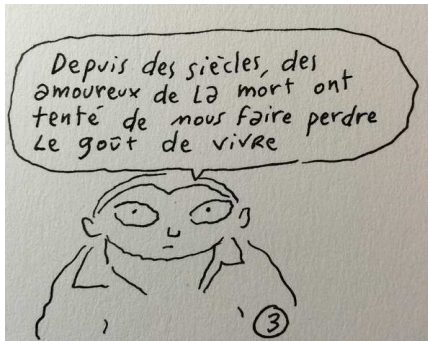 Depuis des siècles, des
amoureux de la mort ont
tenté de nous faire perdre
Le goût de vivre
3